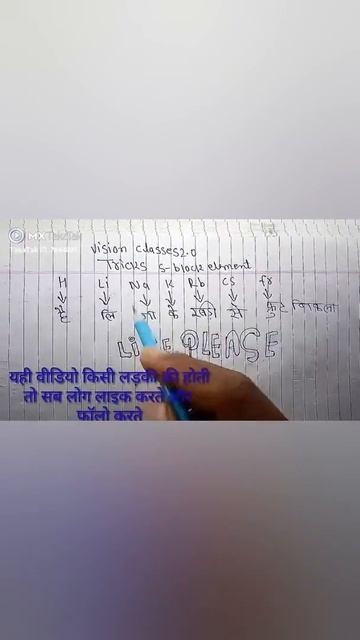 MX TakaTak
Vision classes 2.0
Tricks s-block element
H Li Na K Rb Cs fr
है लि ना के रबी से
LiKE PLEASE
यही वीडियो किसी लड़की की होती
तो सब लोग लाइक करते और
फॉलो करते